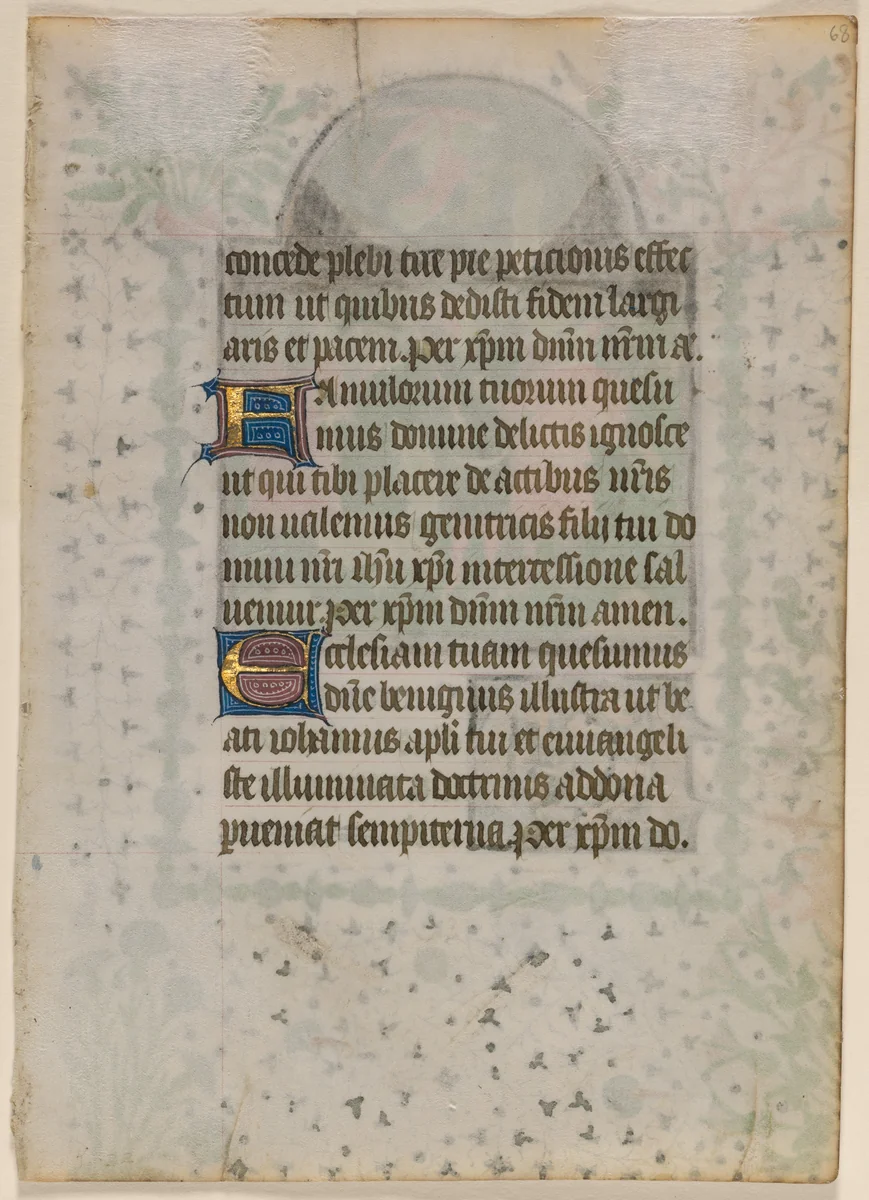 68
concede plebi tue pie peticionis effec
tum ut quibus dedisti fidem largi
aris et pacem. Per xp̄m dn̄m nr̄m ac.
FAmulorum tuorum quesu
mus domine delictis ignosce
ut qui tibi placere de actibus nr̄is
non ualemus genitricis filii tui do
mini nr̄i ih̄u xp̄i intercessione sal
uemur. Per xp̄m dn̄m nr̄m amen.
Ecclesiam tuam quesumus
dn̄e benignus illustra ut be
ati iohannis apl̄i tui et euuangeli
ste illuminata doctrinis ad dona
ꝑueniat sempiterna. Per xp̄m do.